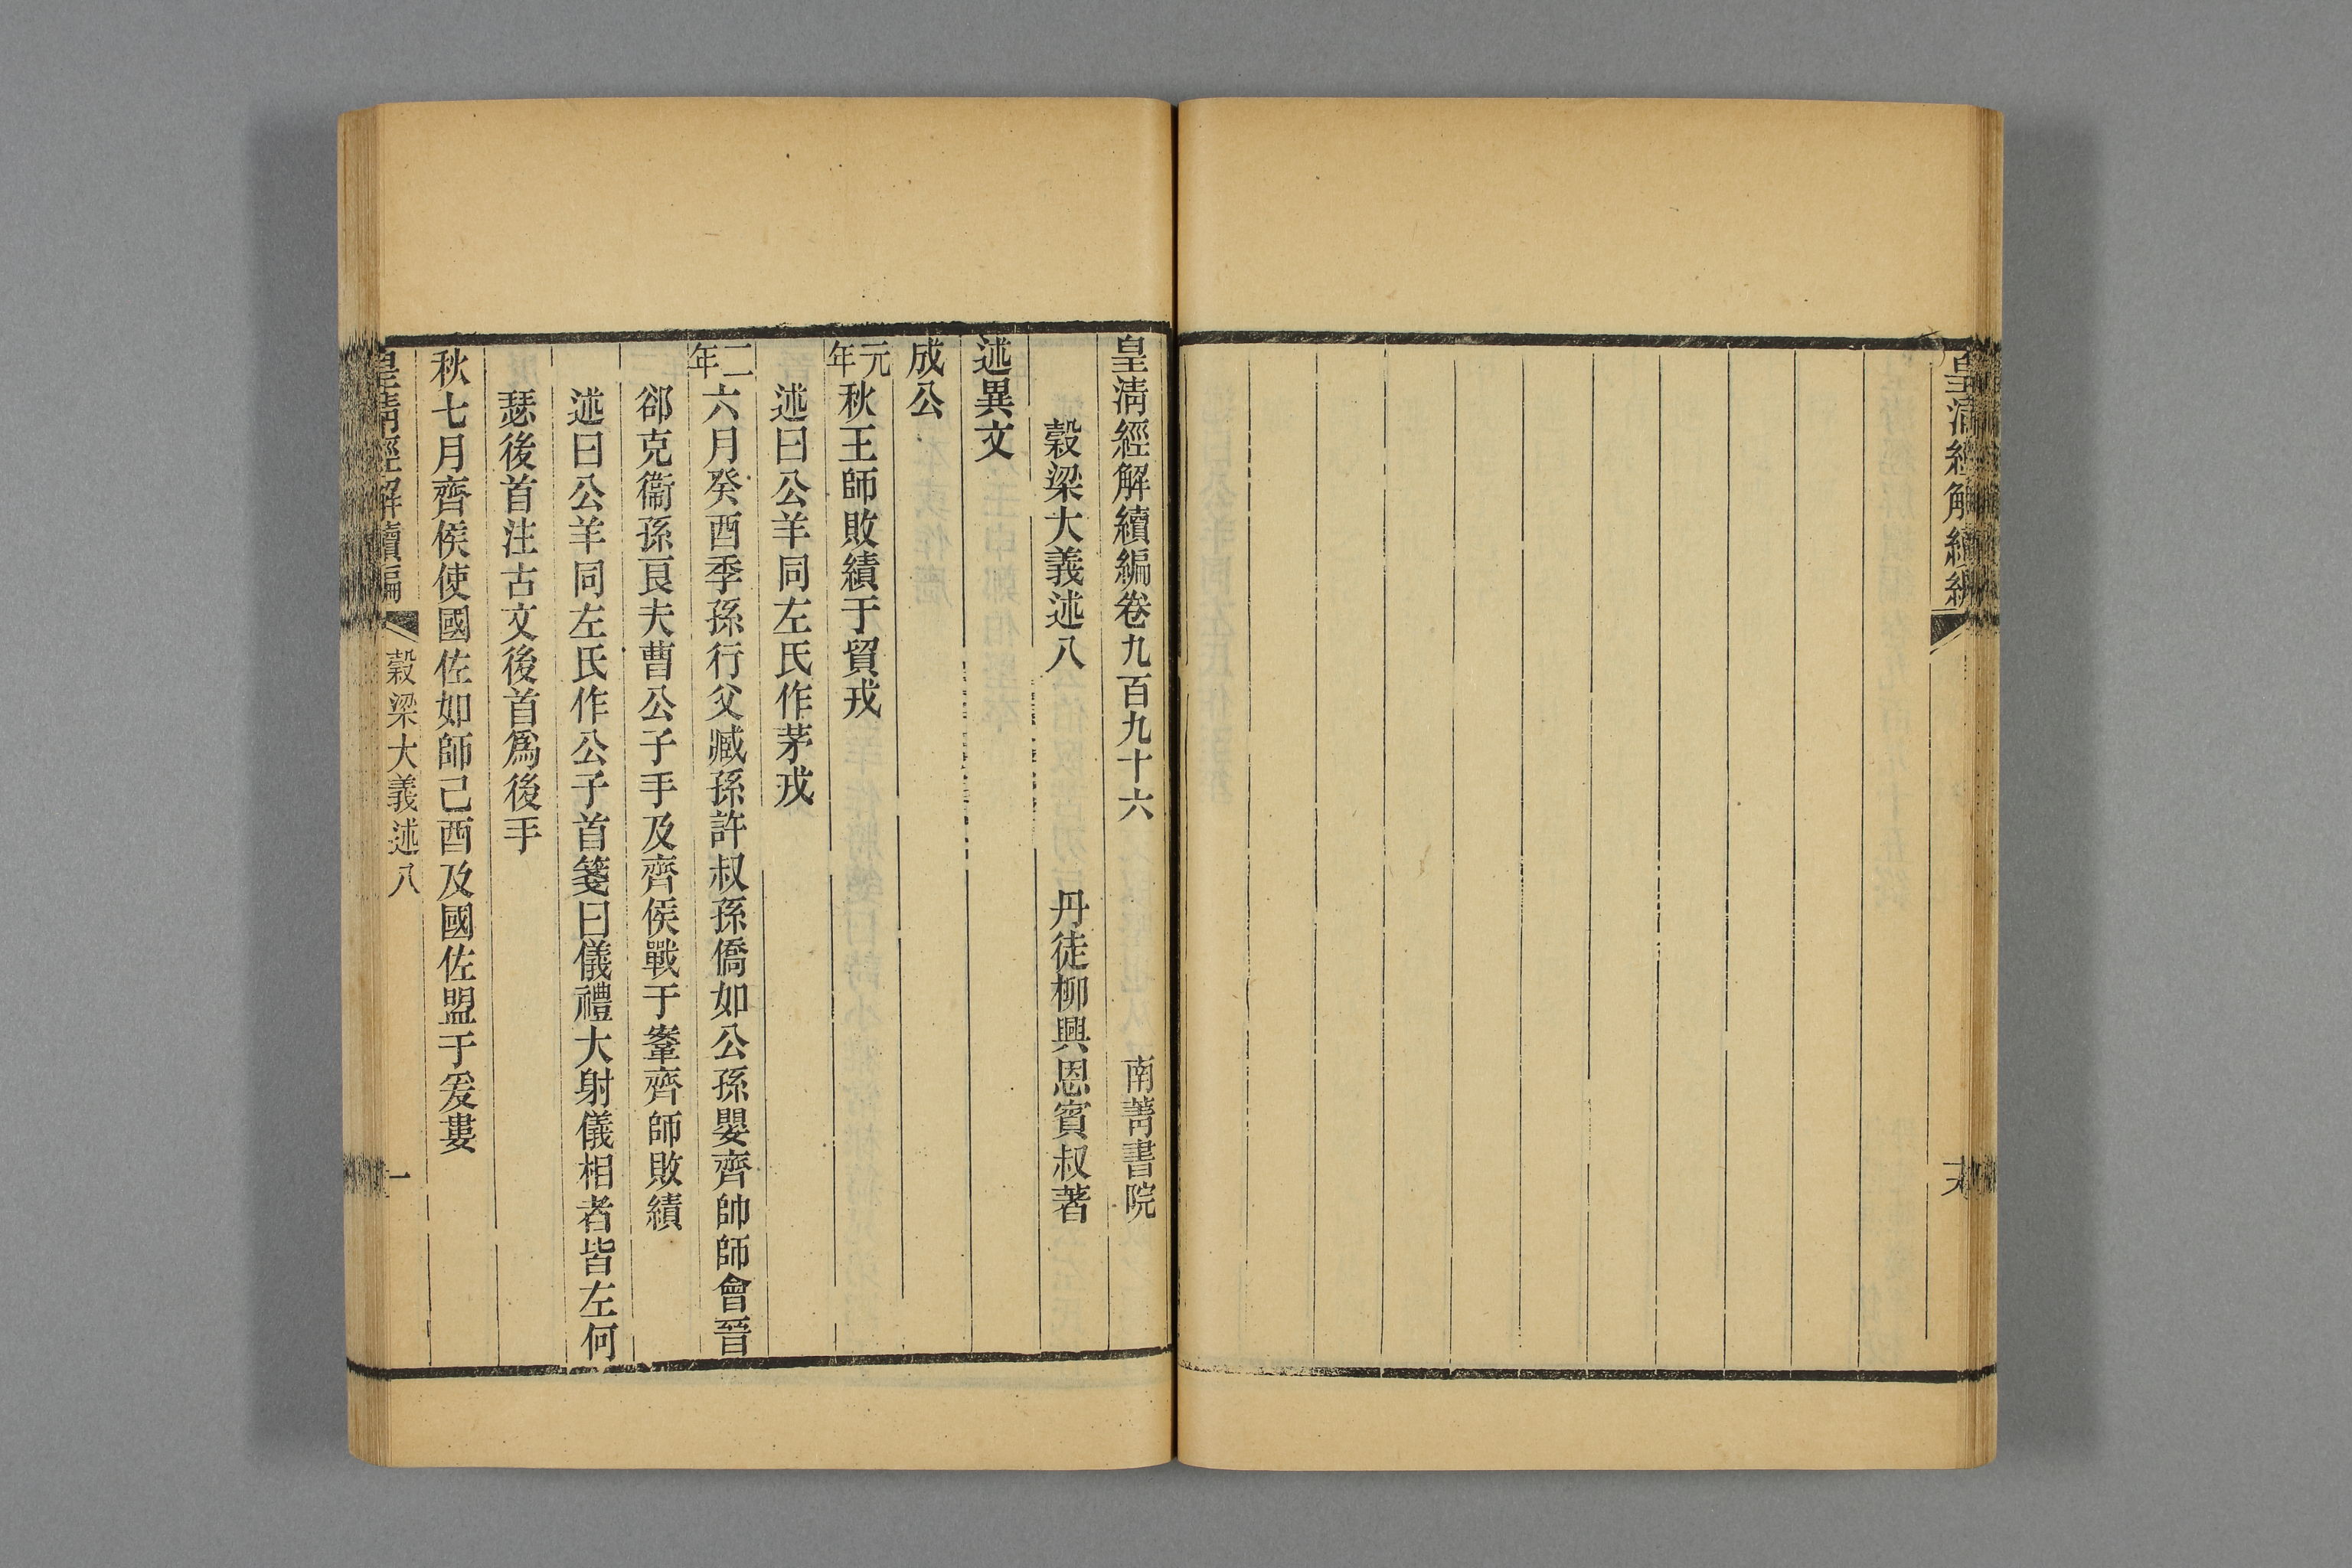 皇淸經解續編
皇淸經解續編卷九百九十六 南菁書院
穀梁大義述八 丹徒柳興恩賓叔著
述異文
成公
元年秋王師敗績于貿戎
述曰公羊同左氏作茅戎
二年六月癸酉季孫行父臧孫許叔孫僑如公孫嬰齊帥師會晉
郤克衞孫良夫曹公子手及齊侯戰于鞌齊師敗績
述曰公羊同左氏作公子首箋曰儀禮大射儀相者皆左何
瑟後首注古文後首爲後手
秋七月齊侯使國佐如師己酉及國佐盟于爰婁
皇淸經解續編 穀梁大義述八 一